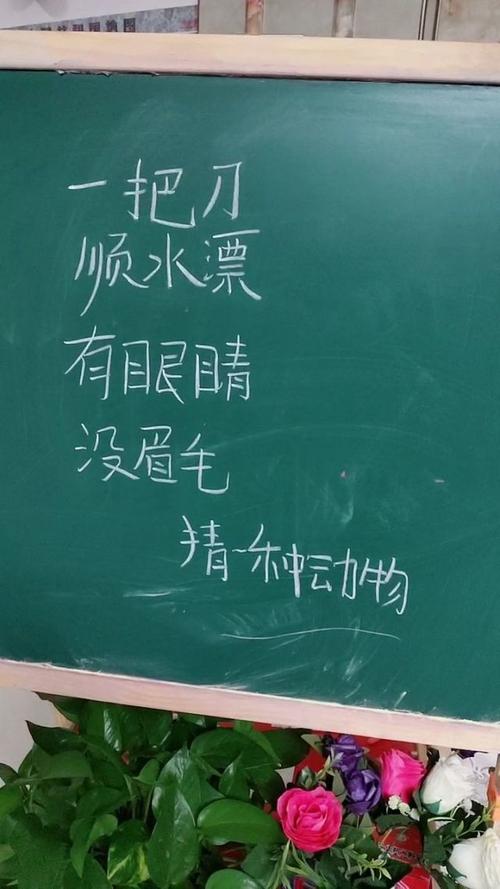 一把刀
顺水漂
有眼睛
没眉毛
猜一种动物